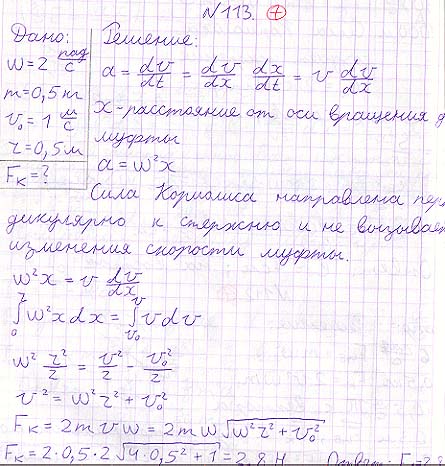 N 113. +
Дано:
ω = 2 рад/с
m = 0,5 кг
v₀ = 1 м/с
r = 0,5 м
Fк = ?
Решение:
a = dv/dt = dv/dx dx/dt = v dv/dx
x - расстояние от оси вращения д
муфты
a = ω²x
Сила Кориолиса направлена пер
дикулярно к стержню и не вызывае
изменения скорости муфты.
ω²x = v dv/dx
∫₀ʳ ω²x dx = ∫ᵥ₀ᵛ v dv
ω² r²/2 = v²/2 - v₀²/2
v² = ω²r² + v₀²
Fк = 2mvω = 2mω√(ω²r² + v₀²)
Fк = 2·0,5·2√(4·0,5² + 1) = 2,8 Н